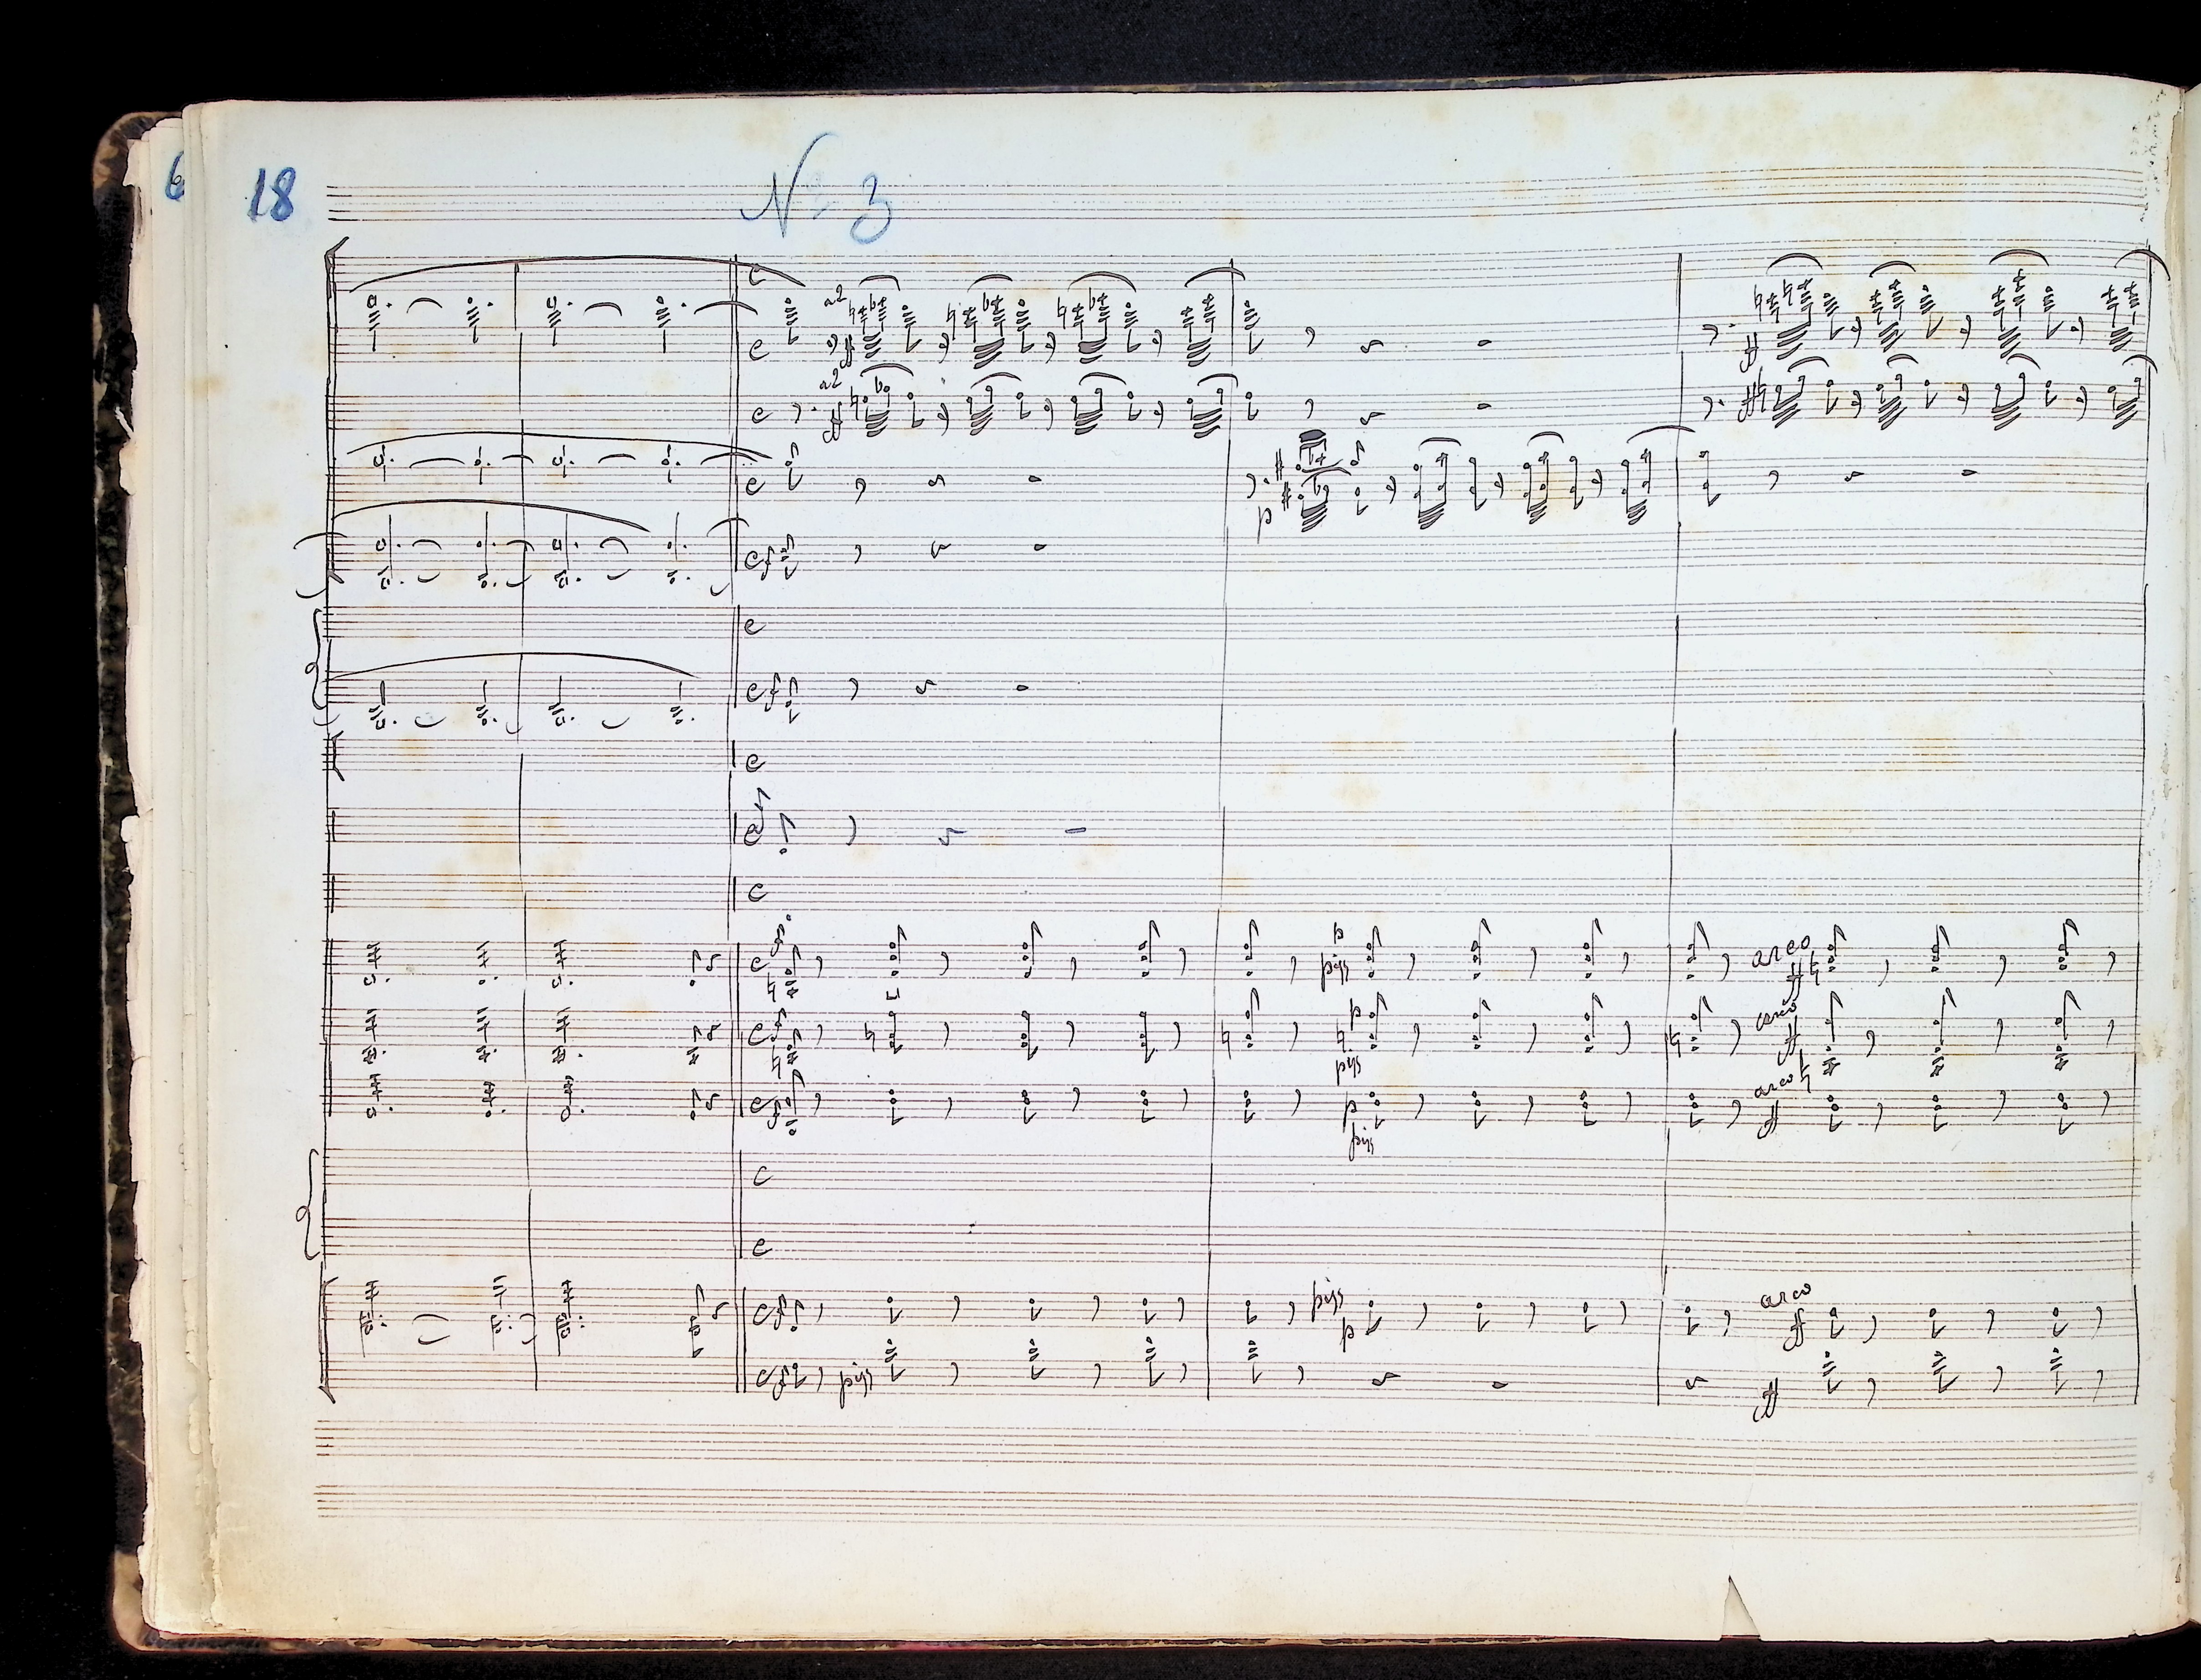 6
18
Nº 3
a2
ff
ff
a2
ff
ff
p
f
f
f
f
p
pizz
arco
ff
f
p
pizz
arco
ff
f
p
pizz
arco
ff
f
pizz
p
arco
ff
f
pizz
ff